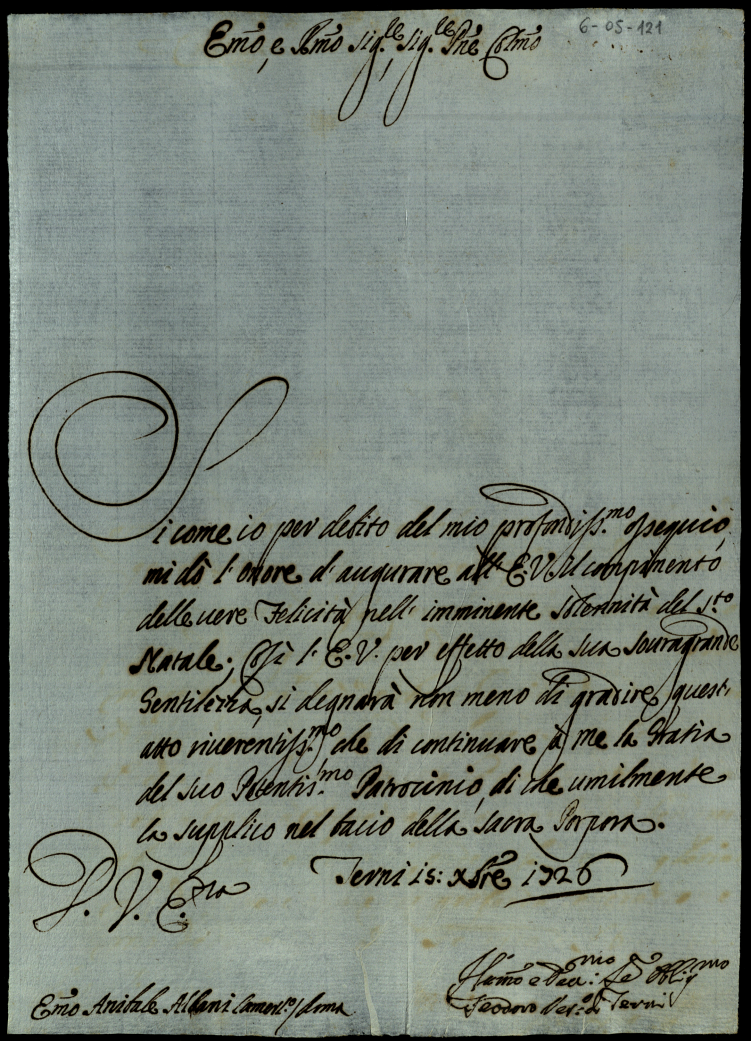 6-05-121
Em̃o, e Rm̃o Sig.re, Sig.re Pñe Colm̃o
Si come io per debito del mio profondiss.mo ossequio,
mi dò l'onore d'augurare all'E.V. il compimento
delle vere Felicità nell'imminente solennità del S.to
Natale; Così l'E.V. per effetto della sua souragrande
Gentilezza, si degnarà non meno di gradire quest'
atto riuerentiss.mo che di continuare à me la Gratia
del suo Potentis.mo Patrocinio, di che umilmente
la supplico nel bacio della sacra Porpora.
Terni 15: Xbre 1726
D. V. E.za
Em̃o Anibale Albani Camerl.o / Roma
Hum̃o e Deu.mo Se.re Obblig.mo
Teodoro Vesc.o di Terni